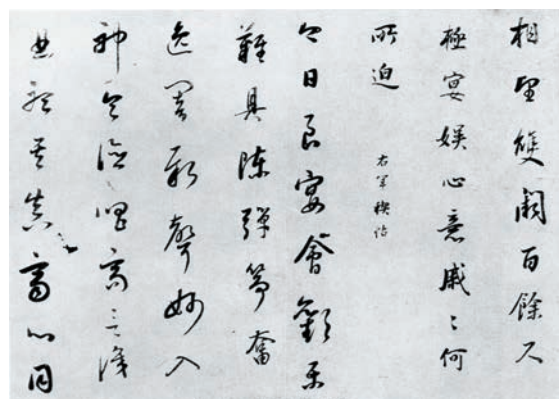 相望雙闕百餘尺
極宴娛心意戚〻何
所迫 右軍稧帖
今日良宴會歡樂
難具陳彈箏奮
逸響新聲妙入
神令德唱高言識
曲聽其真齊心同